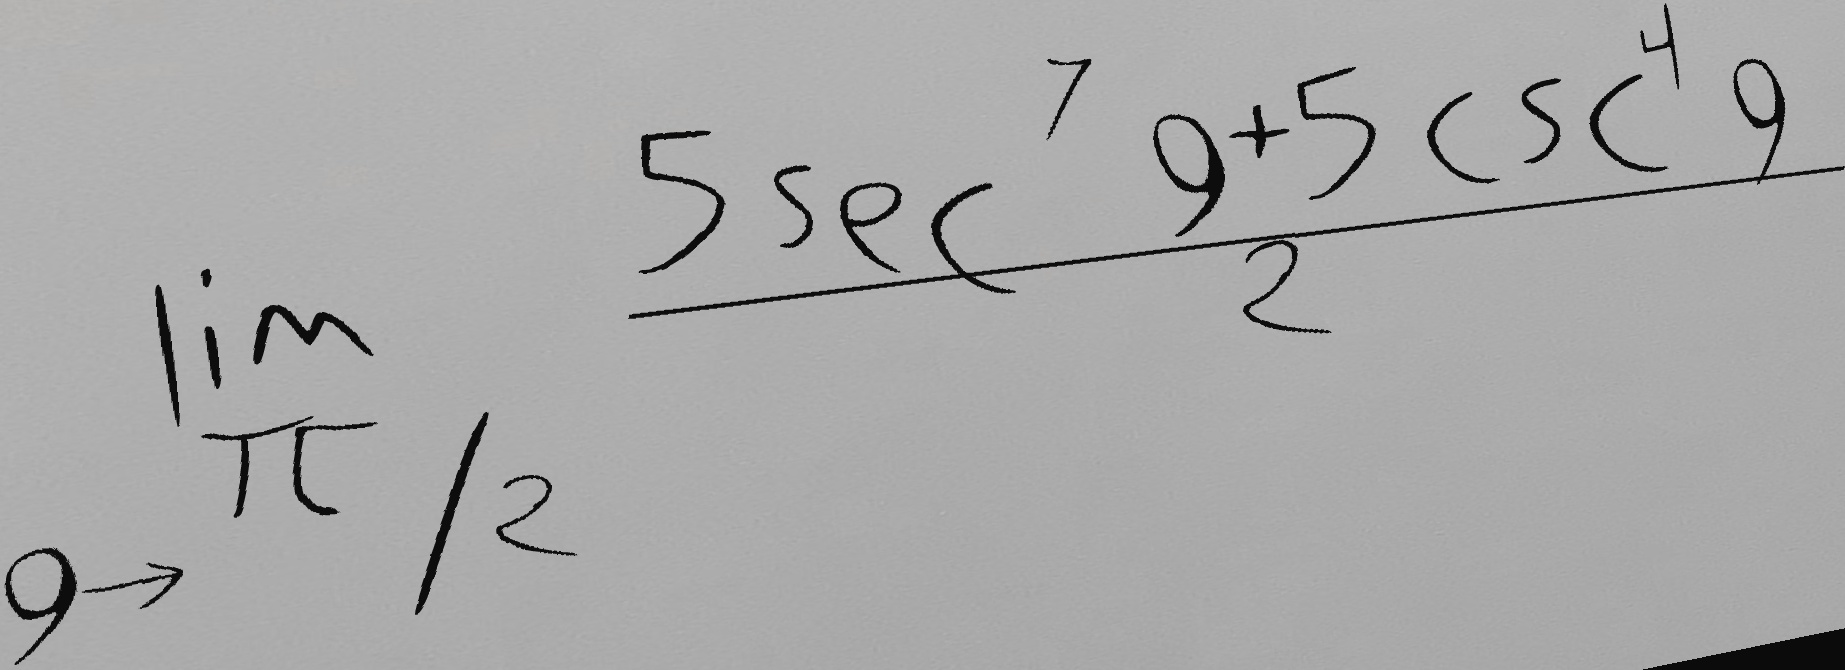 lim 9→π/2 (5sec^7 9+5csc^4 9)/2